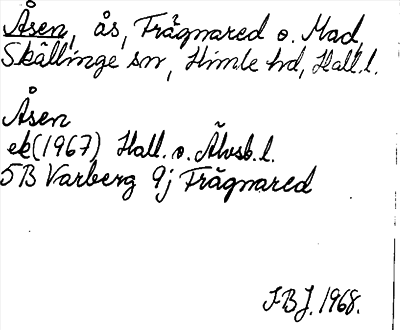 Åsen, ås, Frägnared o. Mad,
Skällinge sn, Himle hd, Hall.l.
Åsen
ek(1967) Hall. o. Älvsb. l.
5B Varberg 9j Frägnared
IBJ. 1968.